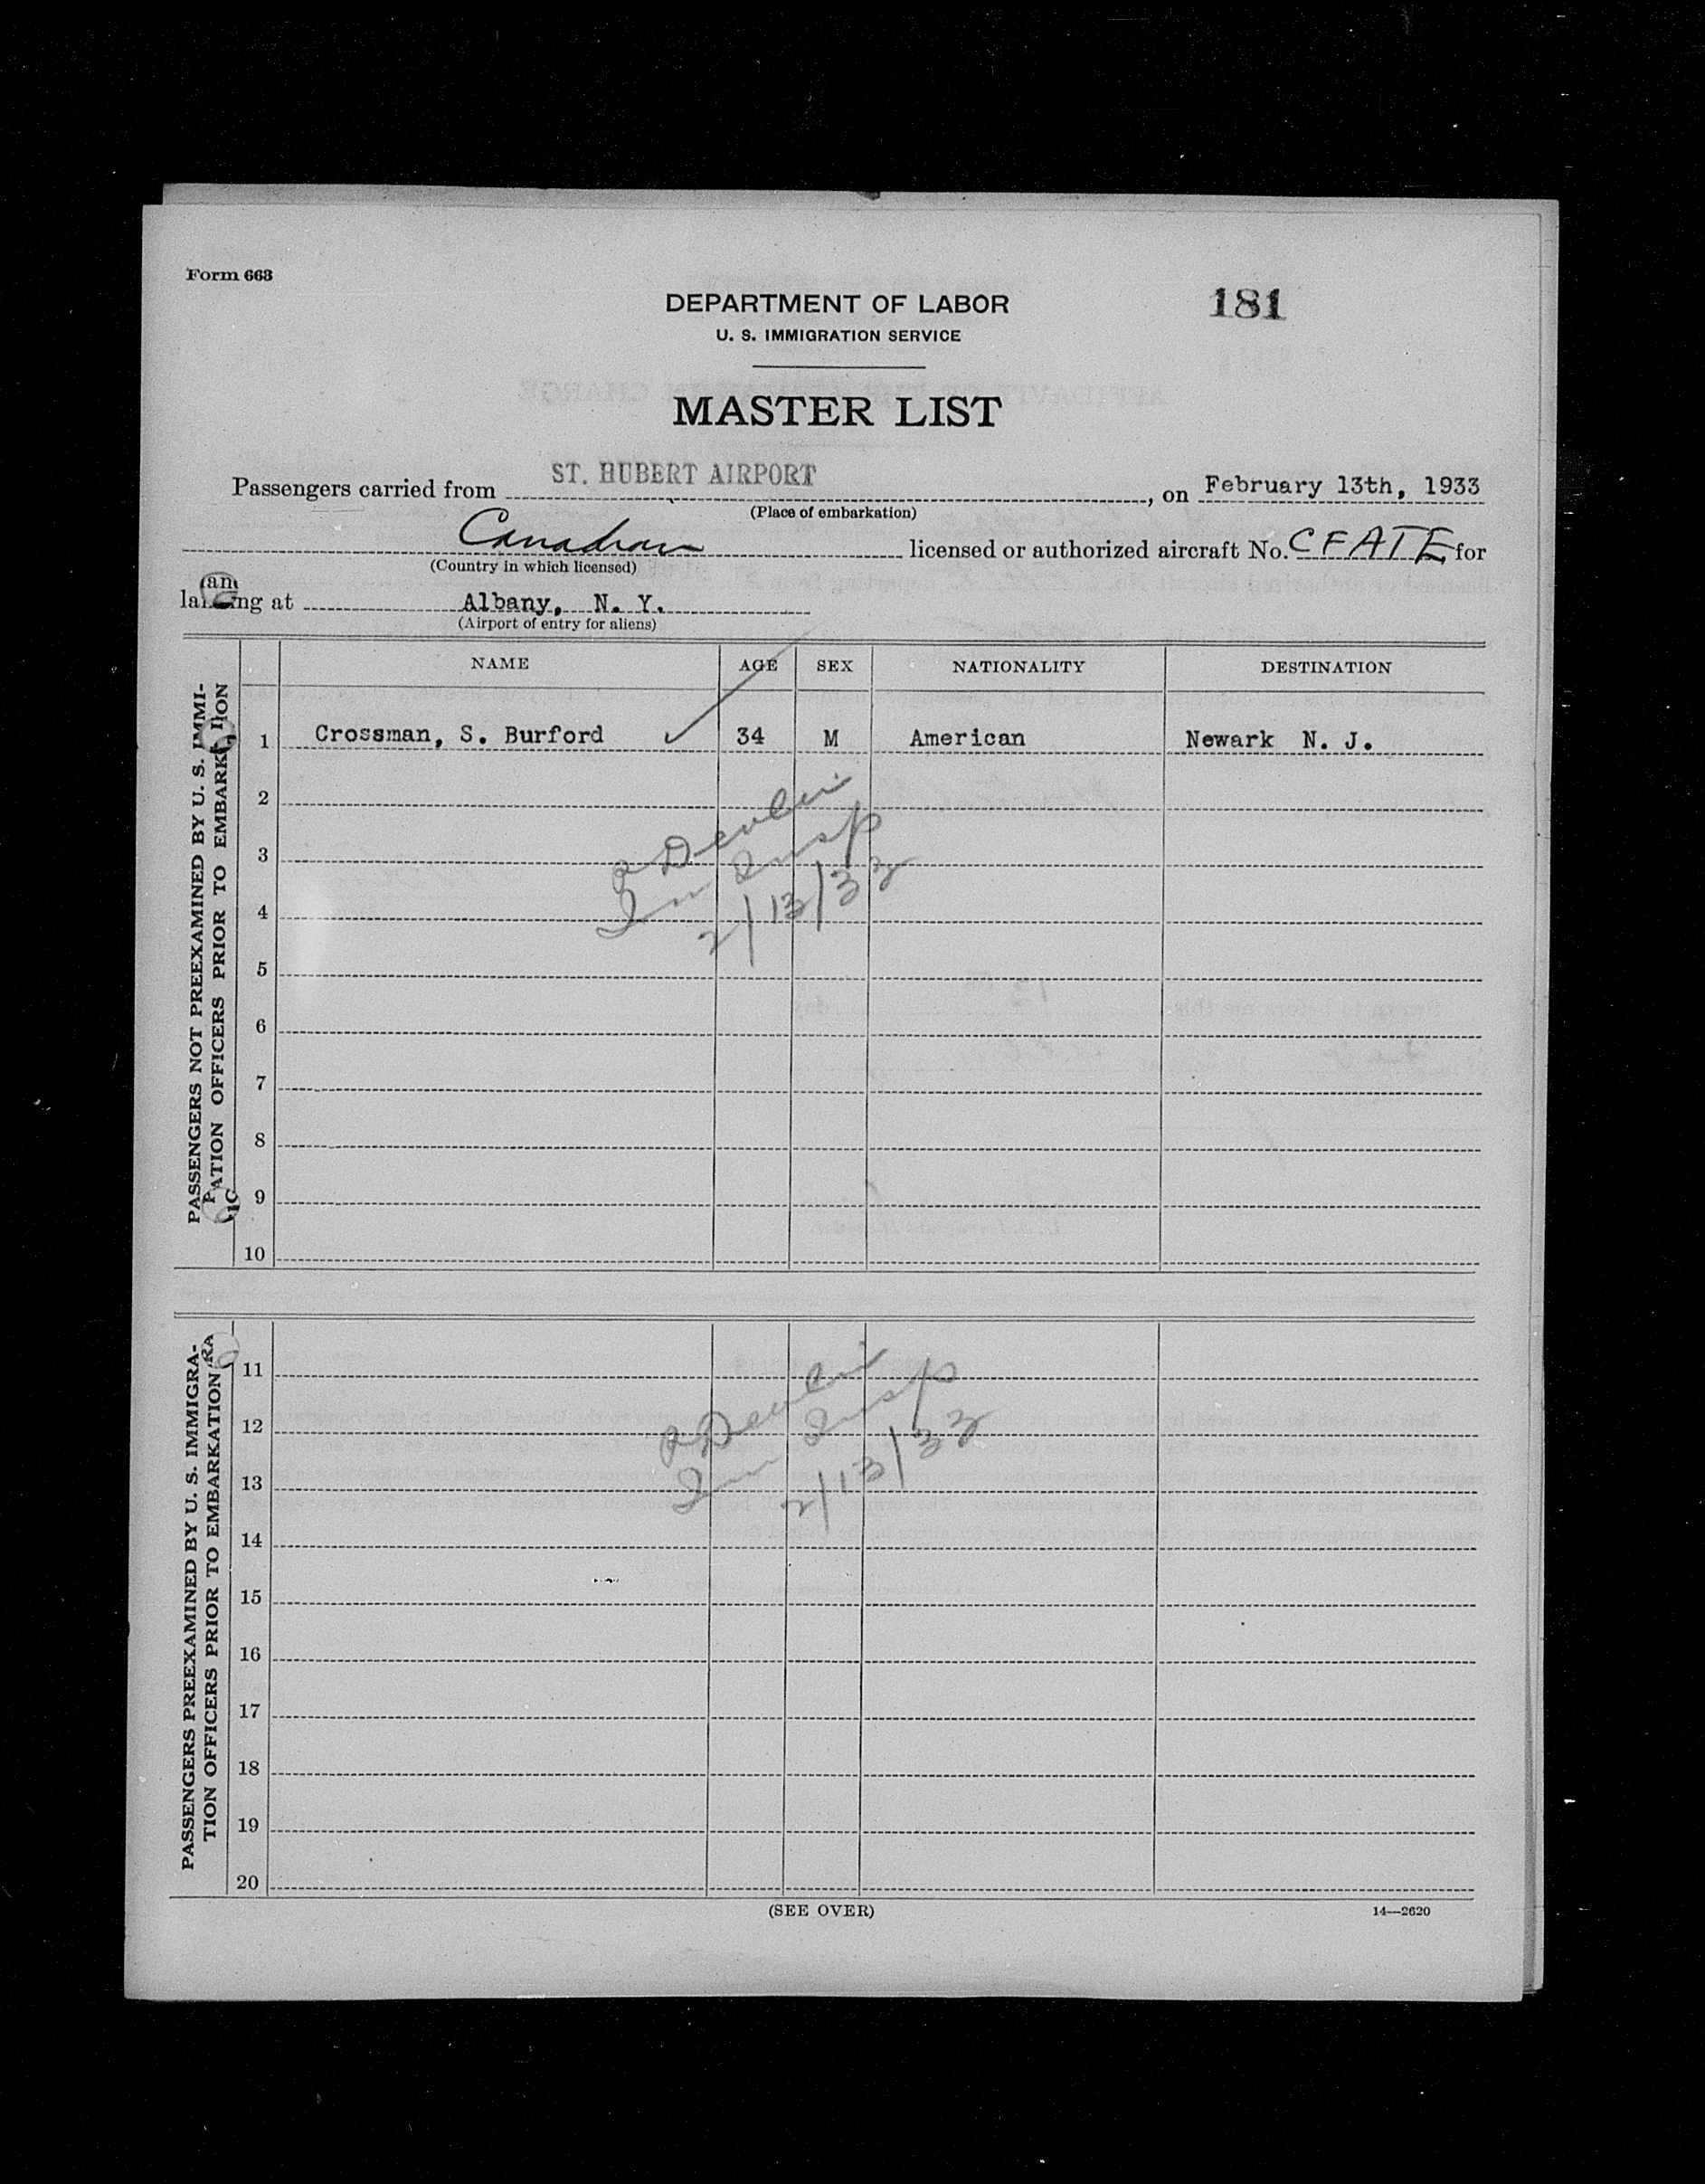 Form 663
DEPARTMENT OF LABOR
181
U. S. IMMIGRATION SERVICE
MASTER LIST
Passengers carried from ST. HUBERT AIRPORT, on February 13th, 1933
(Place of embarkation)
Canadian licensed or authorized aircraft No. CFATE for
(Country in which licensed)
landing at Albany, N. Y.
(Airport of entry for aliens)
NAME AGE SEX NATIONALITY DESTINATION
PASSENGERS NOT PREEXAMINED BY U. S. IMMI-
GRATION OFFICERS PRIOR TO EMBARKATION
1 Crossman, S. Burford ✓ 34 M American Newark N. J.
2
3
4
5
6
7
8
9
10
Devlin
Im Insp
2/13/33
PASSENGERS PREEXAMINED BY U. S. IMMIGRA-
TION OFFICERS PRIOR TO EMBARKATION
11
12
13
14
15
16
17
18
19
20
Devlin
Im Insp
2/13/33
(SEE OVER)
14—2620